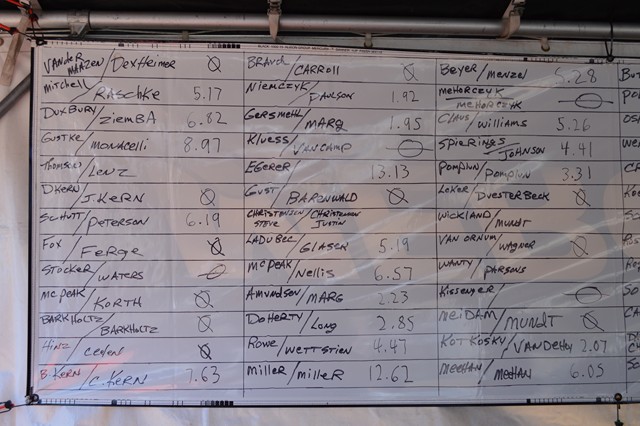 VANDER MAAZEN / DEXHEIMER Ø
Mitchell / RASCHKE 5.17
DUXBURY / ZIEMBA 6.82
GUSTKE / MONACELLI 8.97
Thomson / LENZ
D.KERN / J.KERN Ø
SCHUTT / PETERSON 6.19
FOX / FERGE Ø
STOCKER / WATERS Ø
MCPEAK / KORTH Ø
BARKHOLTZ / BARKHOLTZ Ø
HINZ / Ø
B.KERN / C.KERN 7.63
BRAUN / CARROLL Ø
NIEMCZYK / PAULSON 1.92
GERSMEHL / MARG 1.95
Kluess / VANCAMP Ø
EGERER / 13.13
GUST / BARENWALD Ø
CHRISTENSON STEVE / CHRISTENSON JUSTIN
LADUBEC / GLASER 5.19
MCPEAK / Nellis 6.57
AMUNDSON / MARG 2.23
DOHERTY / Long 2.85
ROWE / WETTSTIEN 4.47
Miller / miller 12.62
BEYER / MENZEL 5.28
MEHORCZYK / MEHORCZYK Ø
CLAUS / Williams 5.26
SPIERINGS / JOHNSON 4.41
POMPLUN / POMPLUN 3.31
LOKER / DUESTERBECK Ø
WICKLAND / MUNDT
VAN ORNUM / WAGNER Ø
WANTY / PARSONS
KISSENGER / Ø
NEIDAM / MUNDT Ø
KOTKOSKY / VANDEHY 2.07
MEEHAN / MEEHAN 6.05